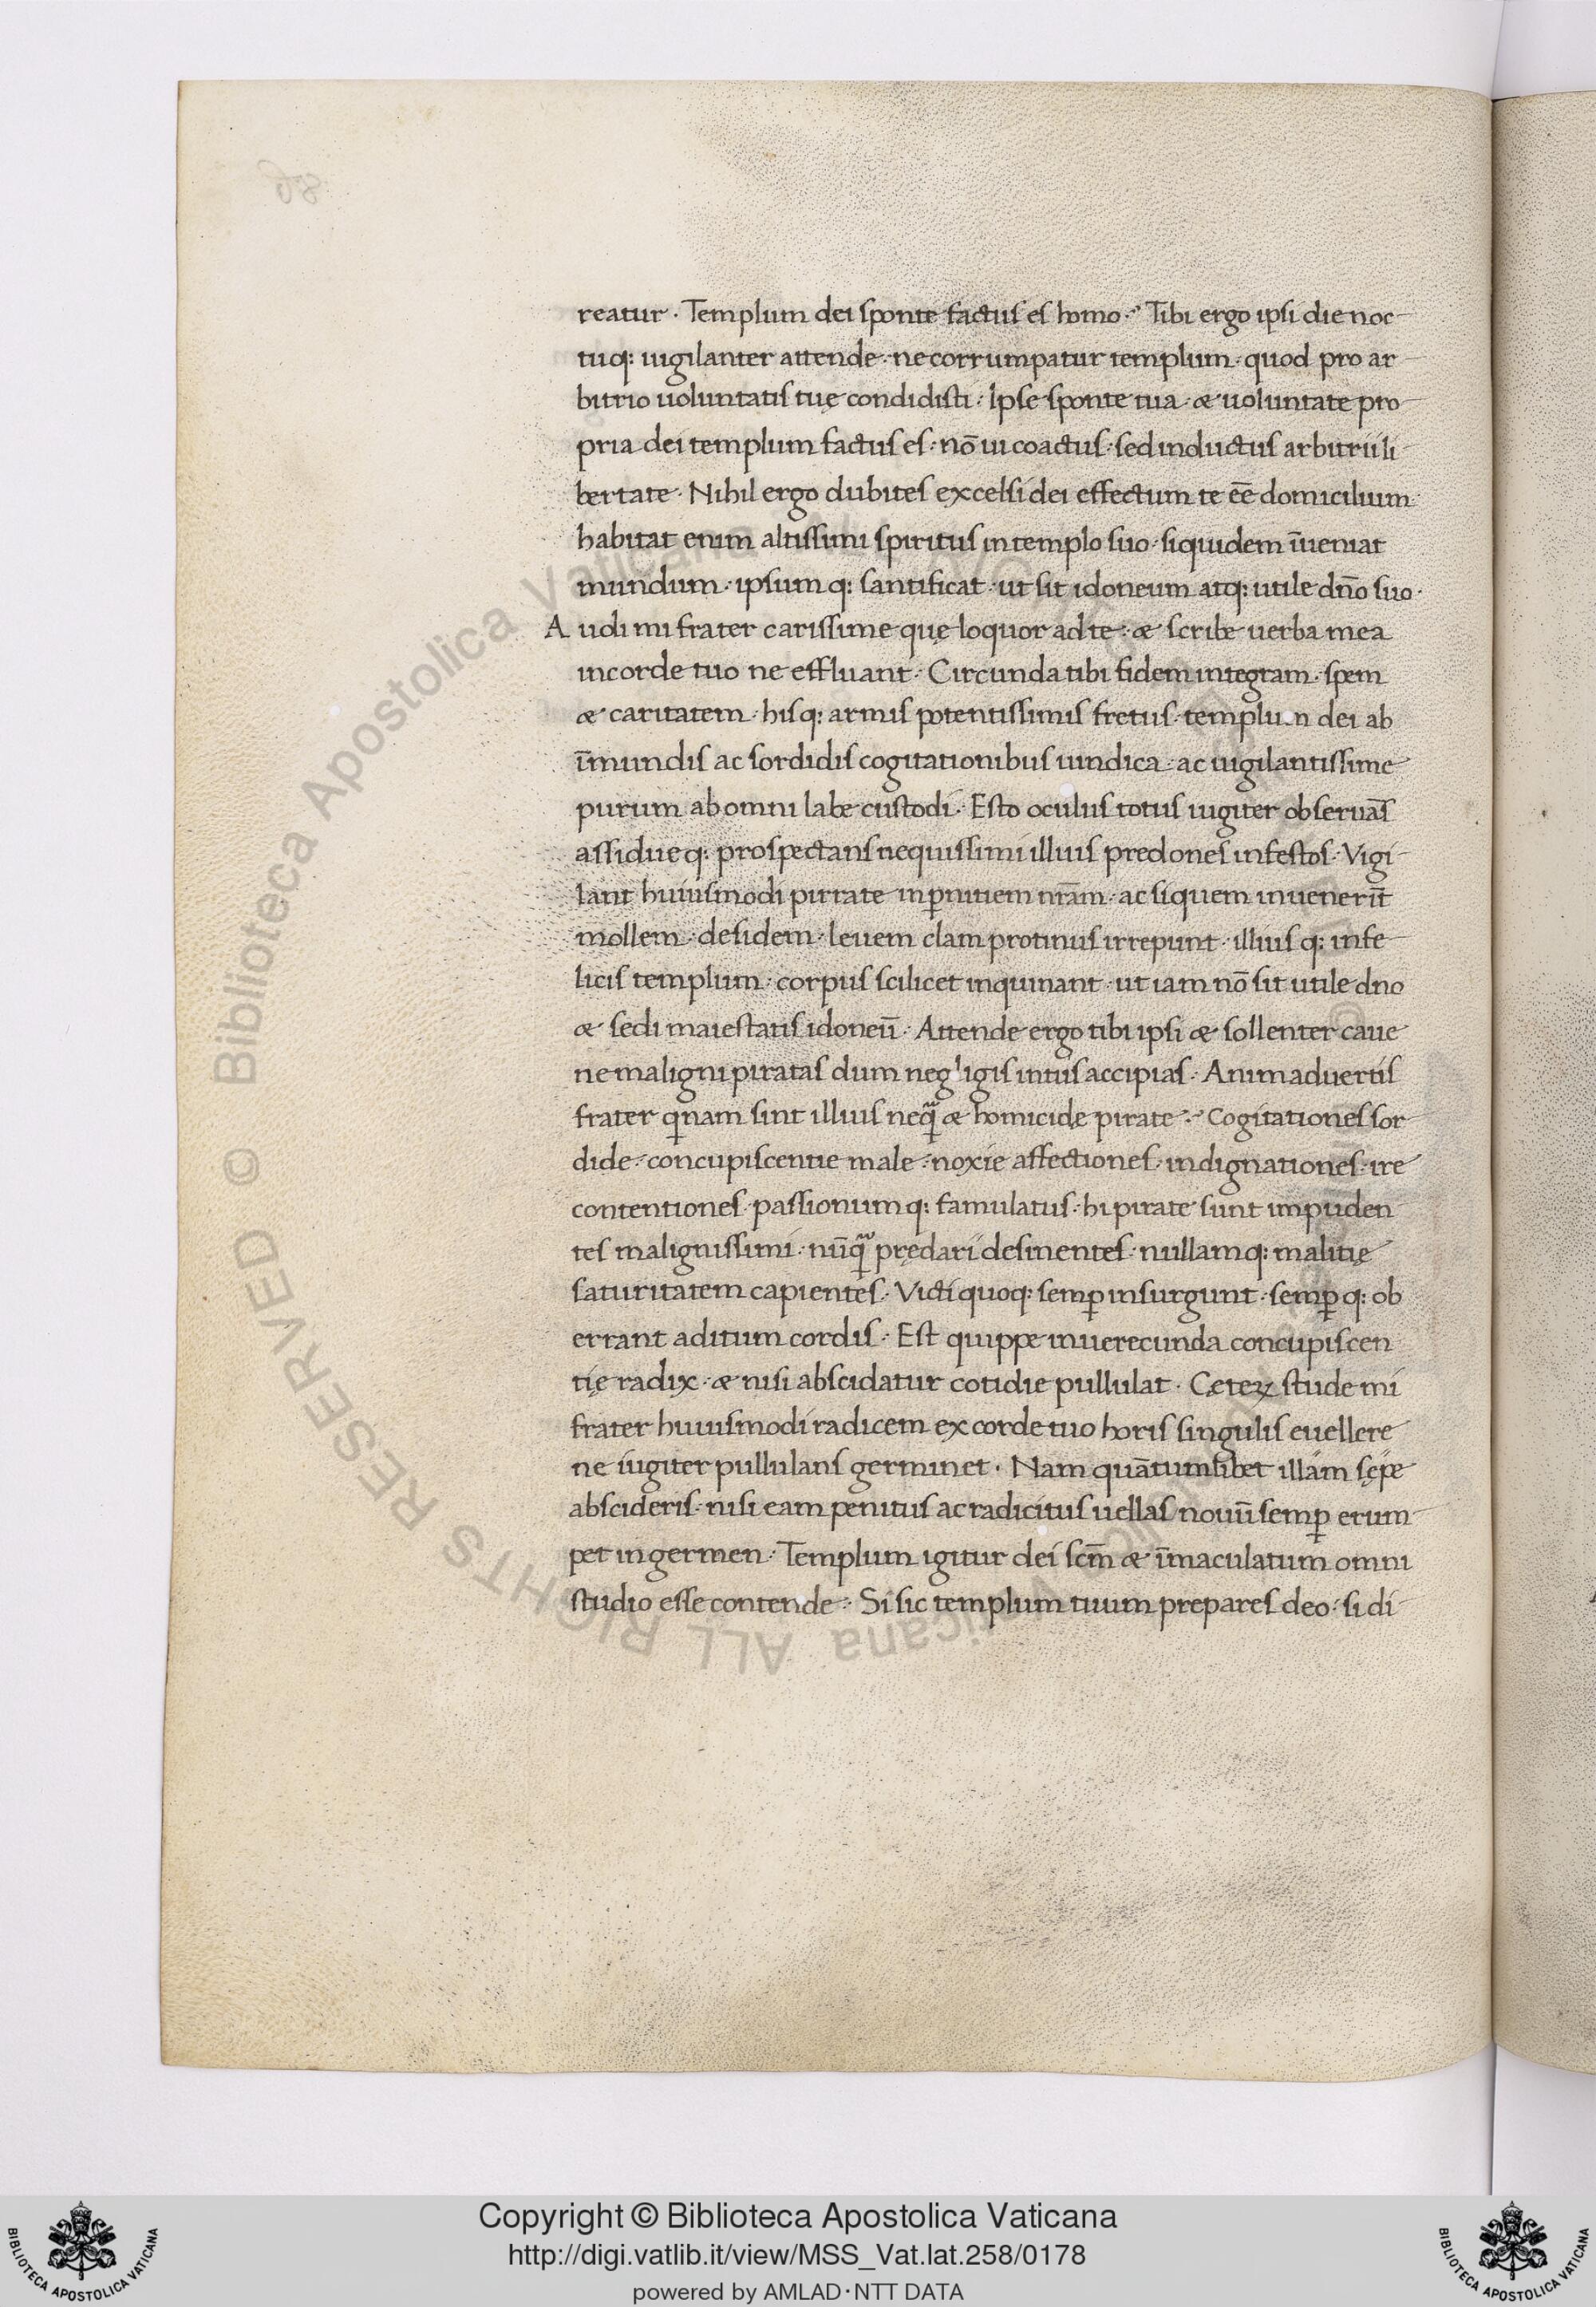 reatur · Templum dei sponte factus es homo · Tibi ergo ipsi die noc
tuq: uigilanter attende · ne corrumpatur templum · quod pro ar
bitrio uoluntatis tuę condidisti · Ipse sponte tua · & uoluntate pro
pria dei templum factus es · nō ui coactus · sed inductus arbitrii li
bertate · Nihil ergo dubites excelsi dei effectum te eē domicilium
habitat enim altissimi spiritus in templo suo · siquidem īueniat
mundum · ipsumq: santificat · ut sit idoneum atq: utile dn̄o suo ·
Audi mi frater carissime quę loquor ad te · & scribe uerba mea
in corde tuo ne effluant · Circunda tibi fidem integram · spem
& caritatem · hisq: armis potentissimis fretus · templum dei ab
īmundis ac sordidis cogitationibus uindica · ac uigilantissime
purum ab omni labe custodi · Esto oculus totus iugiter obseruās
assidueq: prospectans nequissimi illius predones infestos · Vigi
lant huiusmodi pirrate in ꝑnitiem nr̄am · ac siquem inuenerīt
mollem · desidem · leuem clam protinus irrepunt · illiusq: infe
licis templum · corpus scilicet inquinant · ut iam nō sit utile dno
& sedi maiestatis idoneū · Attende ergo tibi ipsi & sollenter caue
ne maligni piratas dum negligis intus accipias · Animaduertis
frater qͥnam sint illius neqᷓ & homicidę pirate · Cogitationes sor
dide · concupiscentie male · noxie affectiones · indignationes · ire
contentiones · passionumq: famulatus · hi pirate sunt impuden
tes malignissimi · nūqᷓ prędari desinentes · nullamq: malitię
saturitatem capientes · Victi quoq: semꝑ insurgunt · semꝑq: ob
errant aditum cordis · Est quippe inuerecunda concupiscen
tię radix · & nisi abscidatur cotidie pullulat · Cęteꝝ stude mi
frater huiusmodi radicem ex corde tuo horis singulis euellere
ne iugiter pullulans germinet · Nam quātumlibet illam sępe
abscideris · nisi eam penitus ac radicitus uellas nouū semꝑ erum
pet in germen · Templum igitur dei scm̄ & īmaculatum omni
studio esse contende · Si sic templum tuum prepares deo · si di
Copyright © Biblioteca Apostolica Vaticana
http://digi.vatlib.it/view/MSS_Vat.lat.258/0178
powered by AMLAD·NTT DATA